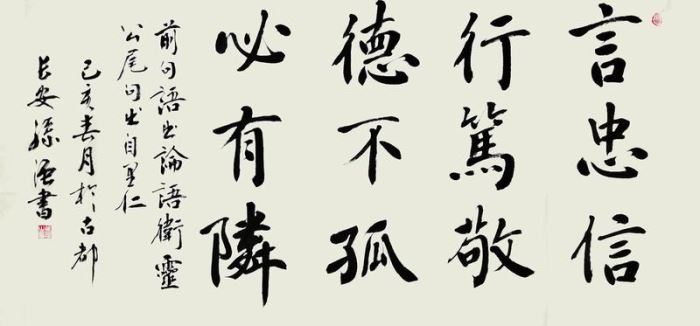 言忠信
行篤敬
德不孤
必有隣
前句語出論語衛靈
公尾句出自里仁
己亥春月於古都
長安孫強書